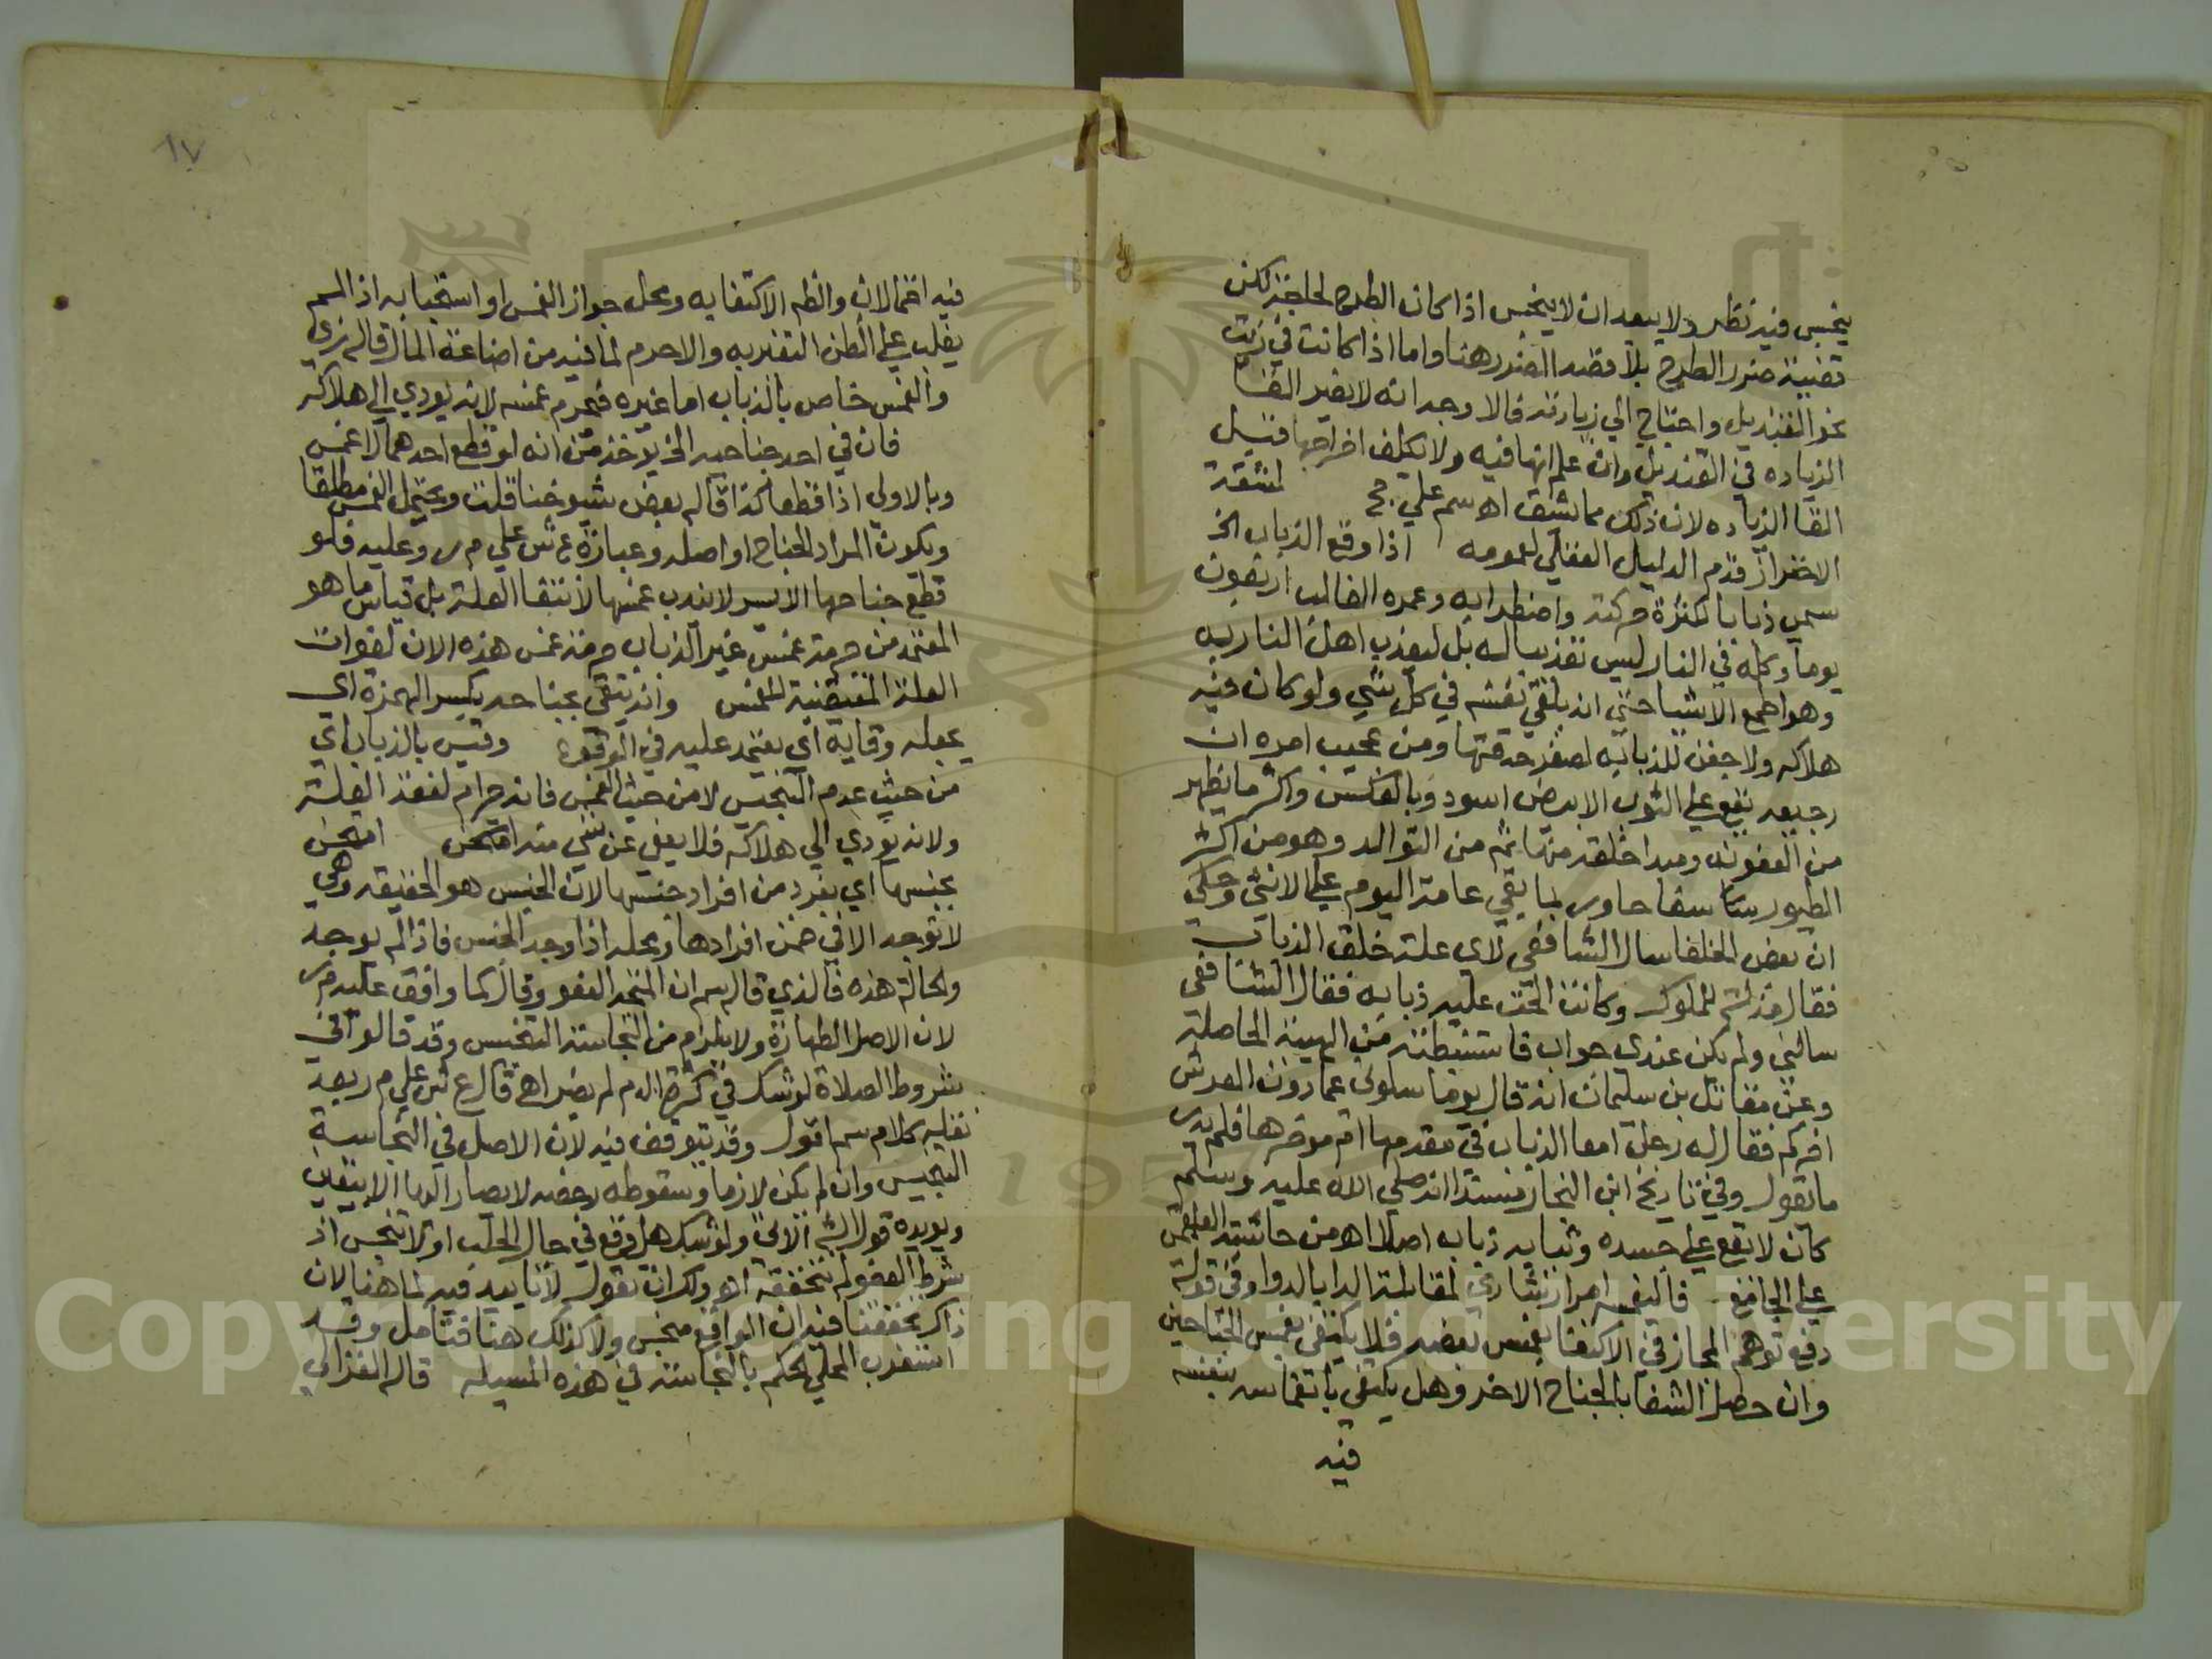 ينجس فيه نظر ولا يبعد ان لا ينجس اذا كان الطرح لحاجة لكن
قضية ضرر الطرح بلا قصد الضرر هنا واما اذا كانت في زيت
نحو القنديل واحتاج الي زيادته فالاوجه انه لا يضر القا
الزياده في القنديل وان علم انها فيه ولا يكلف اخراجها قبل
القا الزياده لان ذلك مما يشق اه سم علي حج لمشقة
الاحتراز قدم الدليل العقلي لعمومه اذا وقع الذباب الخ
سمي ذبابا لكثرة حركته واضطرابه وعمره الغالب اربعون
يوما وكله في النار ليس تعذيبا له بل ليعذب اهل النار به
وهو اطمع الاشيا حتي انه يلقي نفسه في كل شي ولو كان فيه
هلاكه ولا جفن للذبابه لصغر حدقتها ومن عجيب امره ان
رجيعه يقع علي الثوب الابيض اسود وبالعكس واكثر ما يظهر
من العفونه ومبدا خلقه منها ثم من التوالد وهو من اكثر
الطيور سفادا ربما بقي عامة اليوم علي الانثي وحكي
ان بعض الخلفا سال الشافعي لاي علة خلق الذباب
فقال مذلة للملوك وكانت الحت عليه ذبابه فقال الشافعي
سالني ولم يكن عندي جواب فاستنبطته من الهيئة الحاصلة
وعن مقاتل بن سليمان انه قال يوما سلوني عما دون العرش
اخبركم فقال له رجل امعا الذباب في مقدمها ام موخرها فلم يدر
ما يقول وفي تاريخ ابن النجار مسندا انه صلي الله عليه وسلم
كان لا يقع علي جسده وثيابه ذباب اصلا اه من حاشية العلقمي
علي الجامع فاليغمسه امر ارشادي لمقابلة الدا بالدوا وفي قوله
دفع توهم المجاز في الاكتفا بغمس بعضه فلا يكتفي بغمس الجناحين
وان حصل الشفا بالجناح الاخر وهل يكتفي بانغماسه بنفسه
فيه
١٧
فيه احتمالان والظم الاكتفا به ومحل جواز الغمس او استحبابه اذا لم
يغلب علي الظن التغير به والا حرم لما فيه من اضاعة المال قاله زي
والغمس خاص بالذباب اما غيره فيحرم غمسه لانه يودي الي هلاكه
فان في احد جناحيه الخ يوخذ منه انه لو قطع احدهما لا غمس
وبالاولي اذا قطعا كذا قاله بعض شيوخنا قلت ويحتمل الغمس مطلقا
ويكون المراد الجناح او اصله وعبارة ع ش علي م ر وعليه فلو
قطع جناحها الايسر لا يندب غمسها لانتفا العلة بل قياس ما هو
المعتمد من حرمة غمس غير الذباب حرمة غمس هذه الان لفوات
العلة المقتضية للغمس وانه يتقي بجناحه بكسر الهمزة اي
يجعله وقاية اي يعتمد عليه في الوقوع وقيس بالذباب اي
من حيث عدم التنجيس لا من حيث الغمس فانه حرام لفقد العلة
ولانه يودي الي هلاكه فلا يعفي عن شي منه امتحن امتحن
بجنسها اي بفرد من افراد جنسها لان الجنس هو الحقيقه وهي
لا توجد الا في ضمن افرادها ومحله اذا وجد الجنس فاذا لم يوجد
والحالة هذه فالذي قاله سم ان المتجه العفو وقال كما وافق عليه م ر
لان الاصل الطهارة ولا يلزم من النجاسة التنجيس وقد قالوا في
شروط الصلاة لو شك في كثرة الدم لم يضر اه قال ع ش علي م ر بعد
نقله كلام سم اقول وقد يتوقف فيه لان الاصل في النجاسة
التنجيس وان لم يكن لازما وسقوطه رخصه لا يصار اليها الا بيقين
ويويده قول الش الاتي ولو شك هل وقع في حال الحلب اولا تنجس اذ
شرط العفو لم نتحققه اه ولك ان تقول لا تاييد فيه لما هنا لان
ذاك تحققنا فيه ان الواقع منجس ولا كذلك هنا فتامل وقد
استقرب المحلي الحكم بالنجاسة في هذه المسيله قاله الغزالي
Copyright © King Saud University
1957